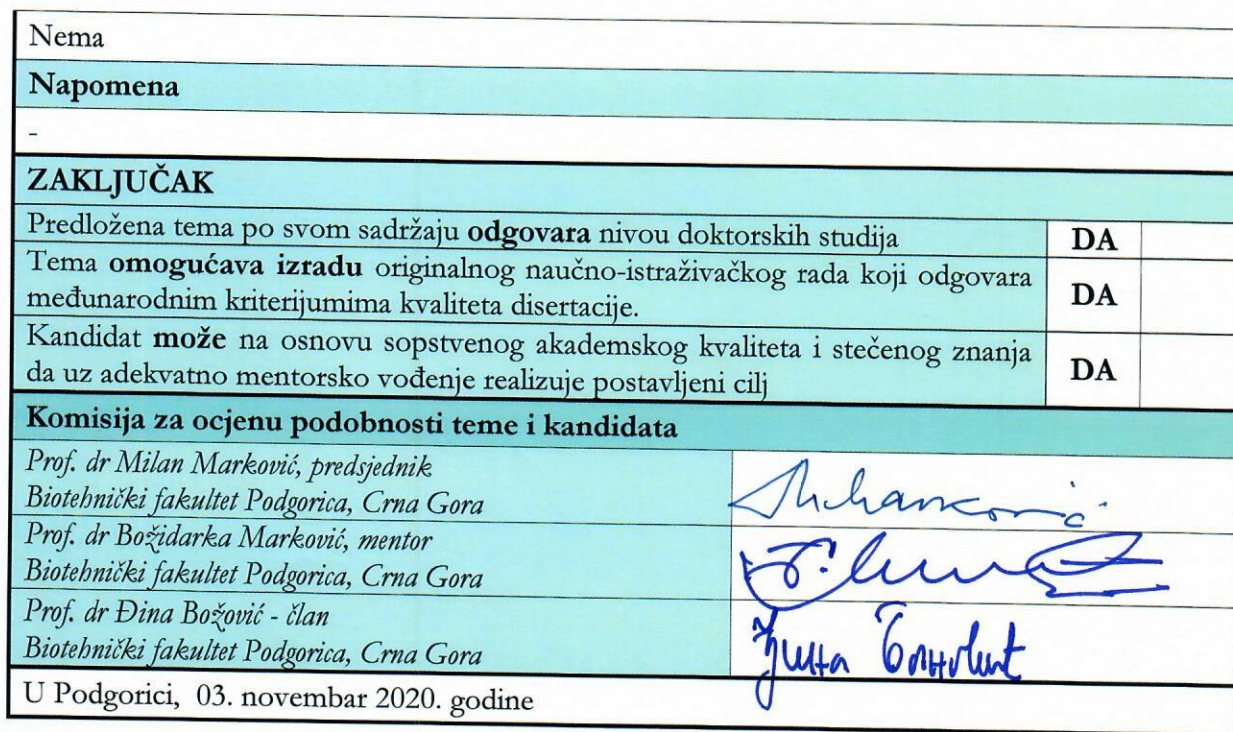 Nema
Napomena
-
ZAKLJUČAK
Predložena tema po svom sadržaju odgovara nivou doktorskih studija DA
Tema omogućava izradu originalnog naučno-istraživačkog rada koji odgovara
međunarodnim kriterijumima kvaliteta disertacije. DA
Kandidat može na osnovu sopstvenog akademskog kvaliteta i stečenog znanja
da uz adekvatno mentorsko vođenje realizuje postavljeni cilj DA
Komisija za ocjenu podobnosti teme i kandidata
Prof. dr Milan Marković, predsjednik
Biotehnički fakultet Podgorica, Crna Gora
Prof. dr Božidarka Marković, mentor
Biotehnički fakultet Podgorica, Crna Gora
Prof. dr Đina Božović - član
Biotehnički fakultet Podgorica, Crna Gora
U Podgorici, 03. novembar 2020. godine